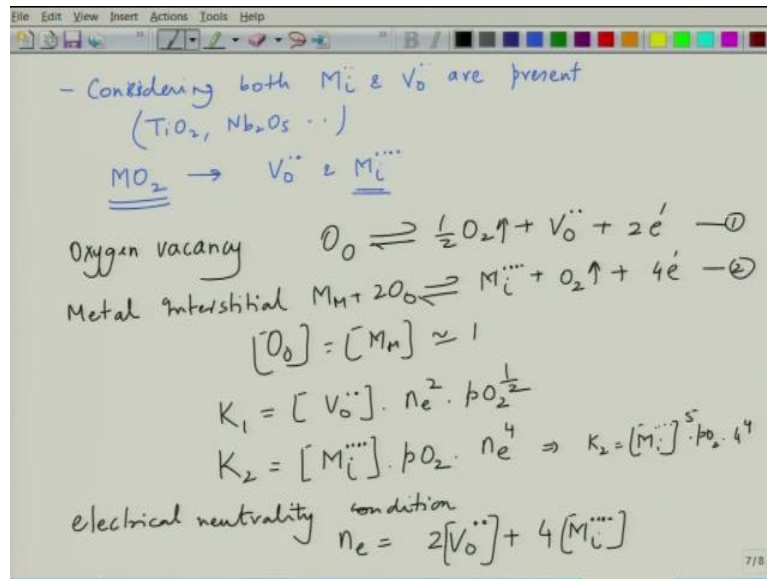 File Edit View Insert Actions Tools Help
- Considering both M̈i & V̈o are present
(TiO₂, Nb₂O₅ ··)
MO₂ → Vo·· & Mi····
Oxygen vacancy Oo ⇌ ½O₂↑ + Vo·· + 2e′ —①
Metal Interstitial MM + 2Oo ⇌ Mi···· + O₂↑ + 4e′ —②
[Oo] = [MM] ≃ 1
K₁ = [Vo··]. ne². pO₂^½
K₂ = [Mi····]. pO₂. ne⁴ ⇒ K₂ = [Mi····]⁵. pO₂. 4⁴
electrical neutrality condition
ne = 2[Vo··] + 4[Mi····]
7/8